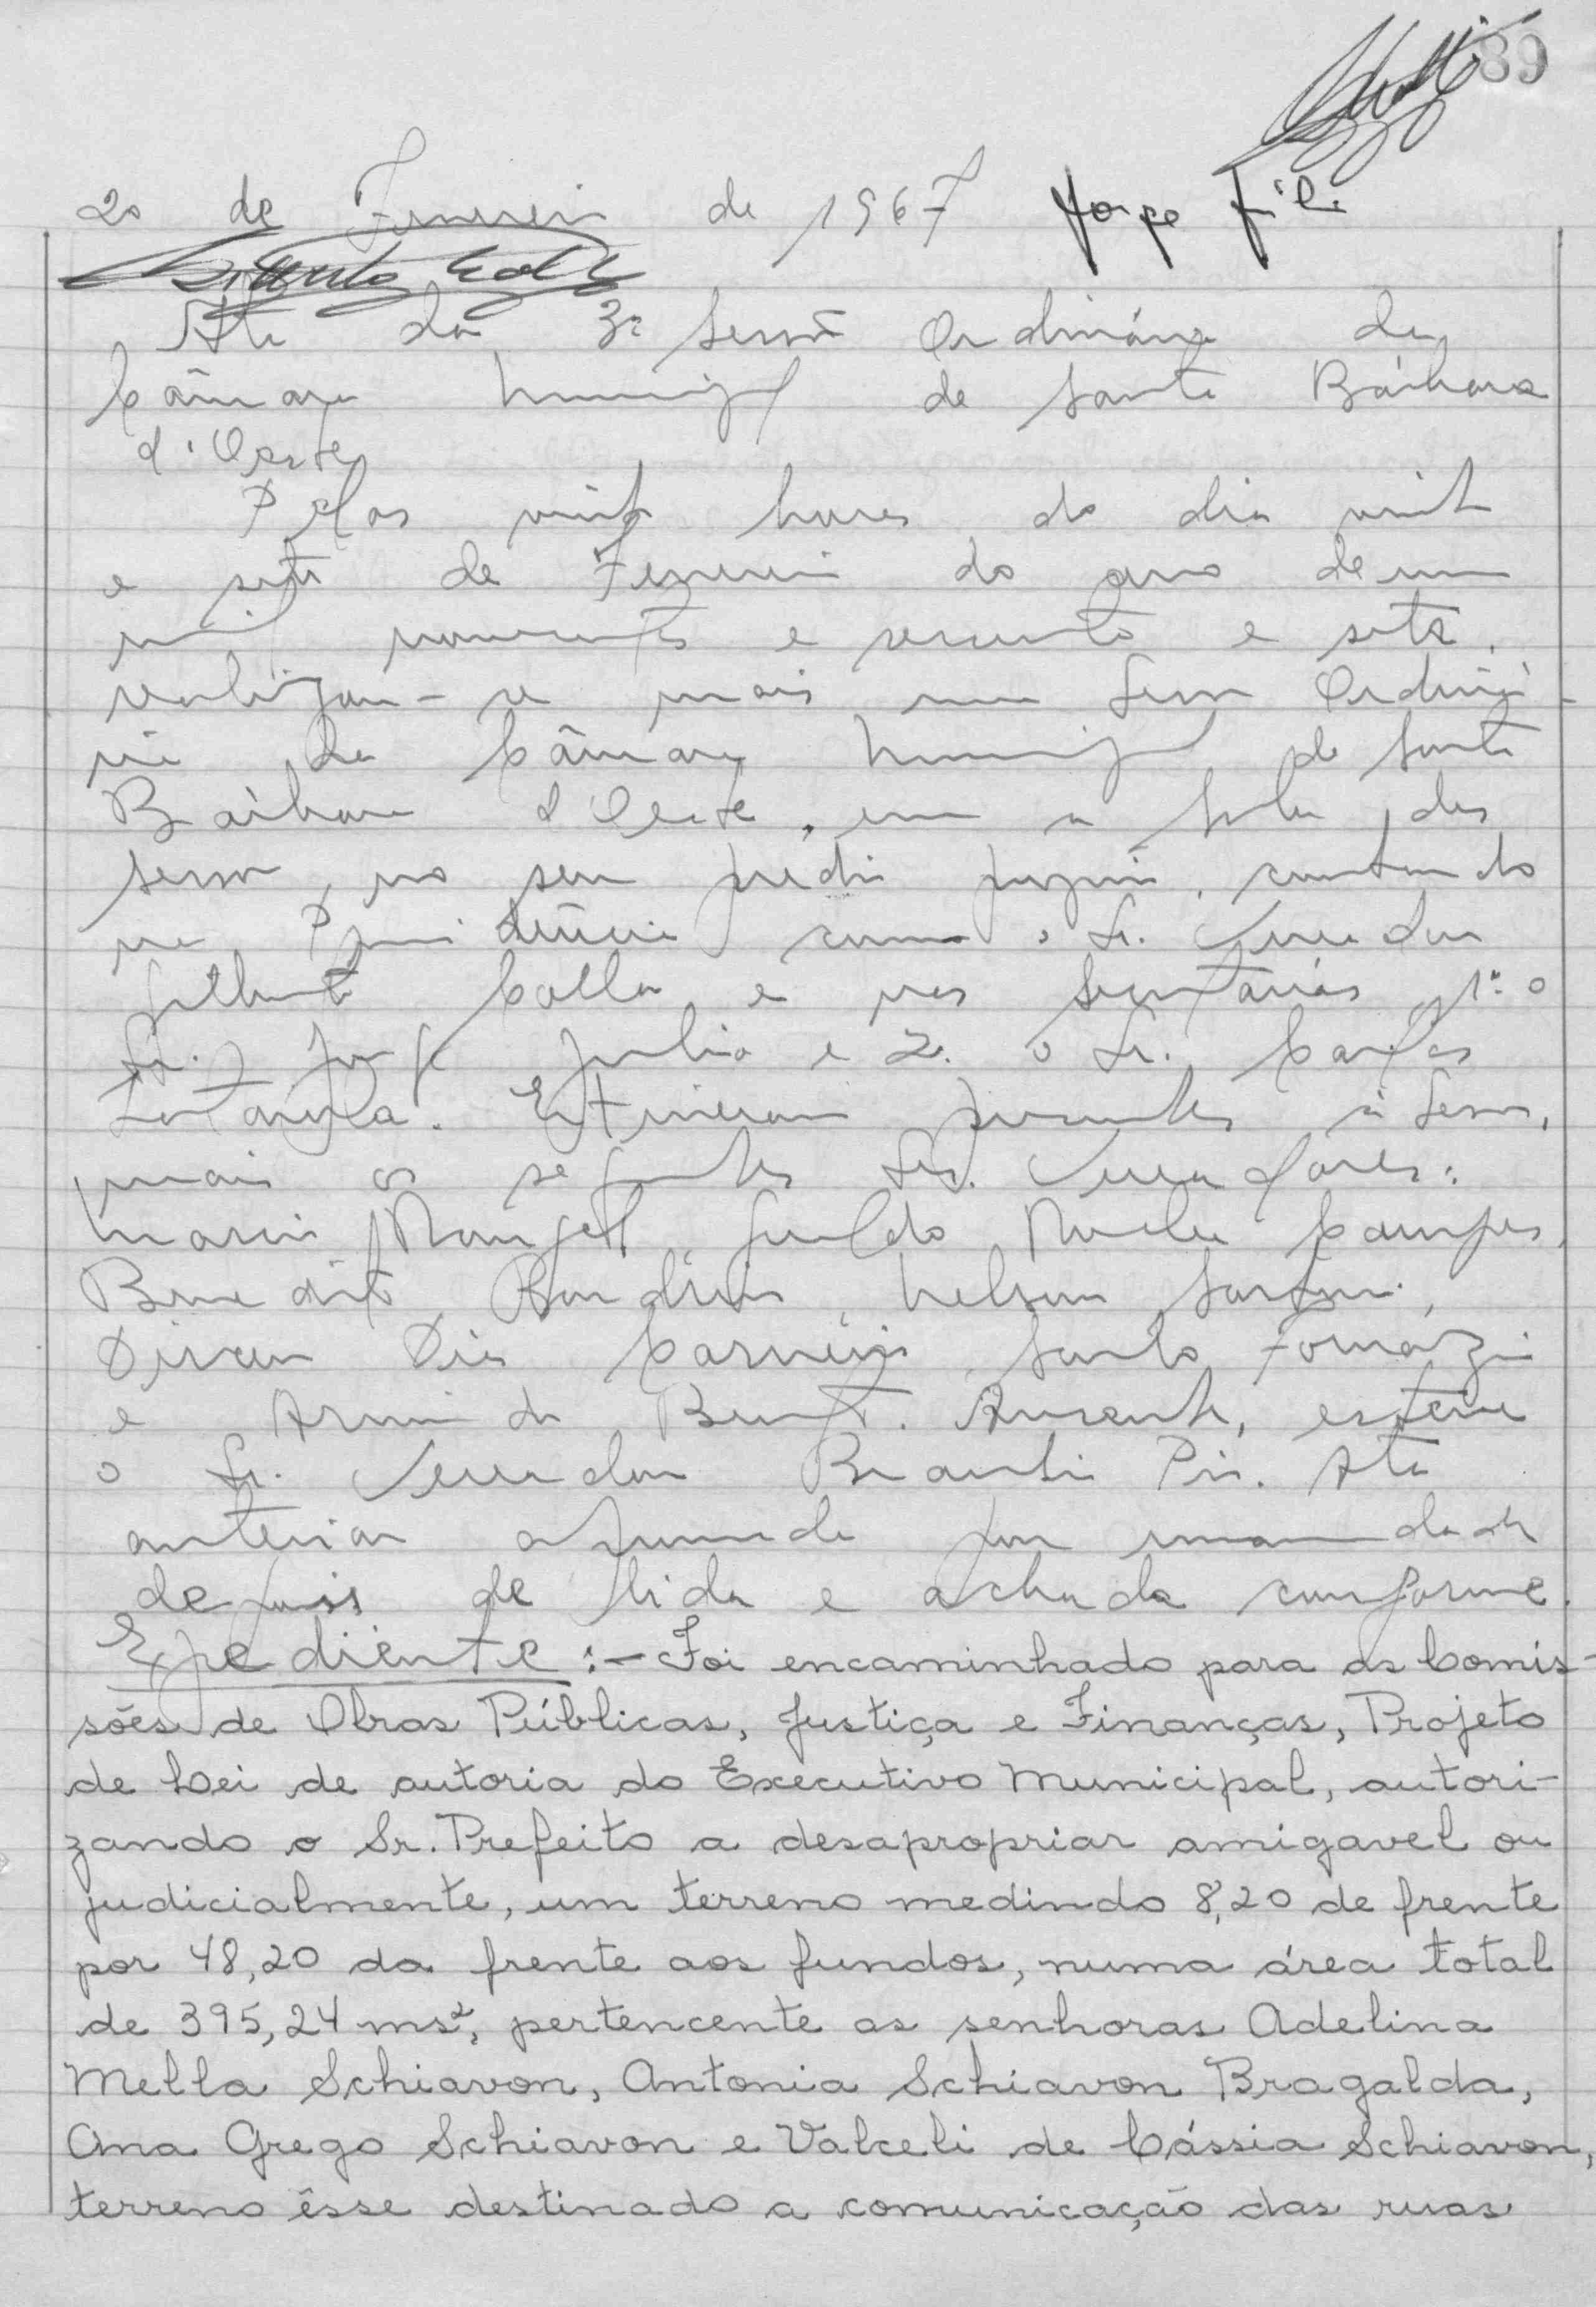 89
20 de Fevereiro de 1967 Jorge
Ata da 3ª Sessão Ordinária da
Câmara Municipal de Santa Bárbara
d'Oeste
Pelas vinte horas do dia vinte
e sete de Fevereiro do ano de um
mil novecentos e sessenta e sete,
realizou-se mais uma Sessão Ordiná-
ria da Câmara Municipal de Santa
Bárbara d'Oeste, em a Sala das
sessões, no seu prédio próprio, contando
na Presidência com o Sr. Vereador
Gilberto Colla e nos Secretários, 1º o
Sr. Jorge Julio e 2º o Sr. Carlos
Estiveram presentes à Sessão,
mais os seguintes Srs. Vereadores:
Mario Geraldo Rocha Campos,
Benedito Nelson
Dirceu Dias Carneiro, Santo Tomázi
e Arminda Bento. Ausente, esteve
o Sr. Vereador Ata
anterior aprovada por unanimidade
depois de lida e achada conforme.
Expediente:- Foi encaminhado para as Comis-
sões de Obras Públicas, Justiça e Finanças, Projeto
de Lei de autoria do Executivo Municipal, autori-
zando o Sr. Prefeito a desapropriar amigavel ou
judicialmente, um terreno medindo 8,20 de frente
por 48,20 da frente aos fundos, numa área total
de 395,24 ms², pertencente as senhoras Adelina
Mella Schiavon, Antonia Schiavon Bragalda,
Ana Grego Schiavon e Valceli de Cássia Schiavon,
terreno êsse destinado a comunicação das ruas